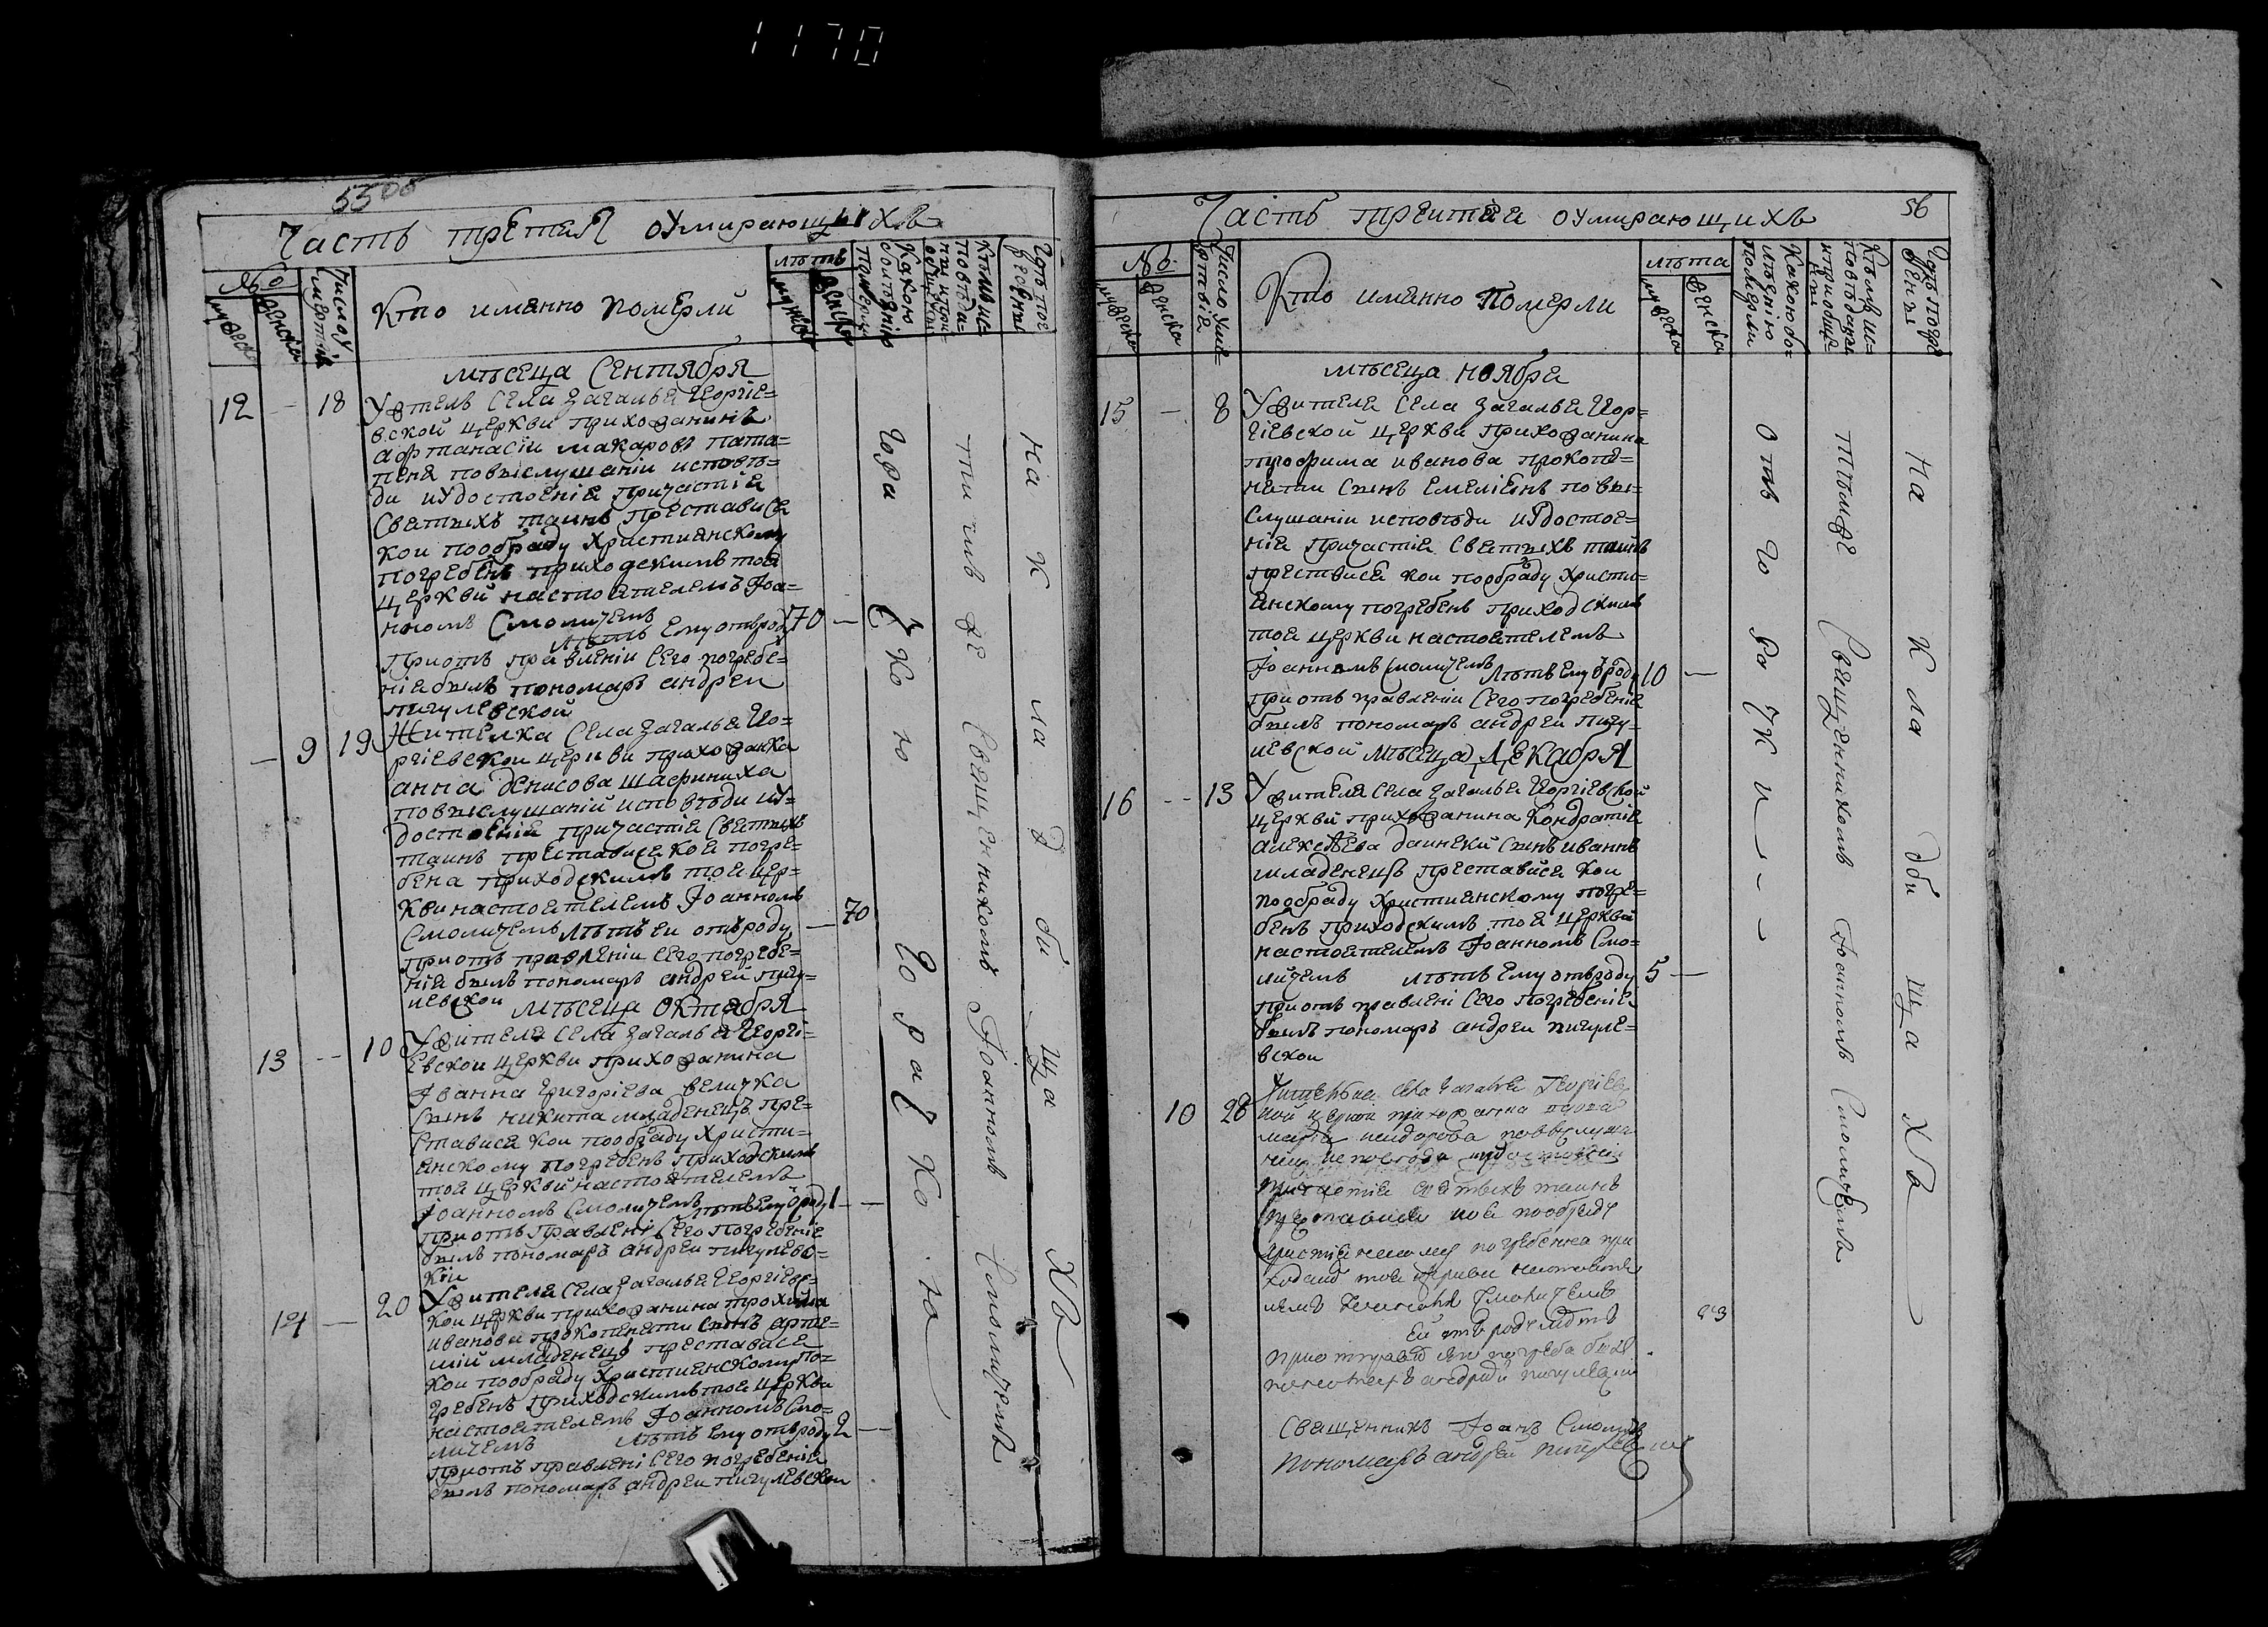 1170
5506
Часть третия оумирающыхъ
№
мужеск
женска
Число умертвія
Кто именно померли
лѣтъ
мужеска
женска
Какою болѣзнію померли
Кѣмъ исповѣданы и приобщены
Гдѣ погребены
мѣсеца Сентября
12 – 18 Житель села Загалья Георгіе=
вской церкви прихожанинъ
афтанасіи макаровъ пата=
пеня повыслушаніи исповѣ=
ди иудостоенія причастія
Светыхъ таинъ преставися
кои пообраду христианскому
погребенъ приходскимъ тоя
церкви настоятелемъ Іоа=
нномъ Смоличемъ
лѣтъ ему отъроду 70 –
Приотъ правленіи сего погребе=
нія былъ пономаръ андреи
пигулевской
– 9 19 Жителка села Загалья Гео=
ргіевской церкви прихожанка
анна денисова
повыслушаніи исповѣди иу=
достоенія причастія светыхъ
таинъ преставися коя погре=
бена приходскимъ тоя цер=
кви настоятелемъ Іоанномъ
Смоличемъ лѣтъ еи отъроду – 70
приотъ правленіи сего погребе=
нія былъ пономаръ андреи пигу=
левскои
мѣсеца октября
13 -- 10 Жителя села Загалья Георгі=
евскои церкви прихожанина
Іоанна григоріева величка
сынъ никита младенецъ пре=
ставися кои пообраду христи=
янскому погребенъ приходскимъ
тоя церкви настоятелемъ
Іоанномъ Смоличемъ лѣтъ ему ѿроду 1 –
приотъ правлені сего погребеніе
былъ пономаръ андреи пигулевс=
кіи
14 – 20 Жителя села Загалья Георгіевс=
кои церкви прихожанина трохима
иванова прокопенати сынъ арте=
міи младенецъ преставися
кои пообраду христиенскому по=
гребенъ приходскимъ тоя церкви
настоятелемъ Іоанномъ Смо=
личемъ лѣтъ ему отъроду 2 –
приотъ правлені сего погребенія
былъ пономаръ андреи пигулевскои
чахоткою
тимъ же свещенникомъ Іоанномъ Смоличемъ
на кладбищахъ
56
Часть третяя оумирающихъ
№
мужеска
женска
Число умертвія
Кто именно померли
лѣта
мужеска
женска
Какою болѣзнію померли
Кѣмъ исповѣданы и приобщены
Гдѣ погребены
мѣсеца ноября
15 – 8 Жителя села Загалья Геор=
гіевской церкви прихожанина
трофима иванова прокопе=
нати сынъ емеліянъ повы=
слушаніи исповѣди иудостое=
нія причастія светыхъ таинъ
преставися кои пообраду христи=
янскому погребенъ приходскимъ
тоя церкви настоятелемъ
Іоанномъ Смоличемъ лѣтъ ему ѿроду 10 –
приотъ правленіи сего погребенія
былъ пономаръ андреи пигу=
левской мѣсеца Декабря
16 -- 13 Жителя села Загалья Георгіевской
церкви прихожанина Кондратія
алексѣева даинеки сынъ иваннъ
младенецъ преставися кои
пообраду християнскому погре=
бенъ приходскимъ тоя церкви
настоятелемъ Іоанномъ Смо=
личемъ лѣтъ ему отъроду 5 –
приотъ правлені сего погребеніе
былъ пономаръ андреи пигуле=
вскои
10 28 Жителька села Загалья Георгіев
кой церкви прихожанка
марія повыслуша
ніи исповѣди иудостоеніи
причастія светыхъ таинъ
преставися коя пообраду
христіенскому погребенна при
ходскимъ тоя церкви настояте
лемъ Іоанномъ Смоличемъ
ей отъ роду лѣтъ
пономаръ андреи пигулевски
Свещенникъ Іоанъ Смоличъ
пономаръ андреи пигулевски
тымже свещенникомъ Іоанномъ Смоличемъ
на кладбищахъ